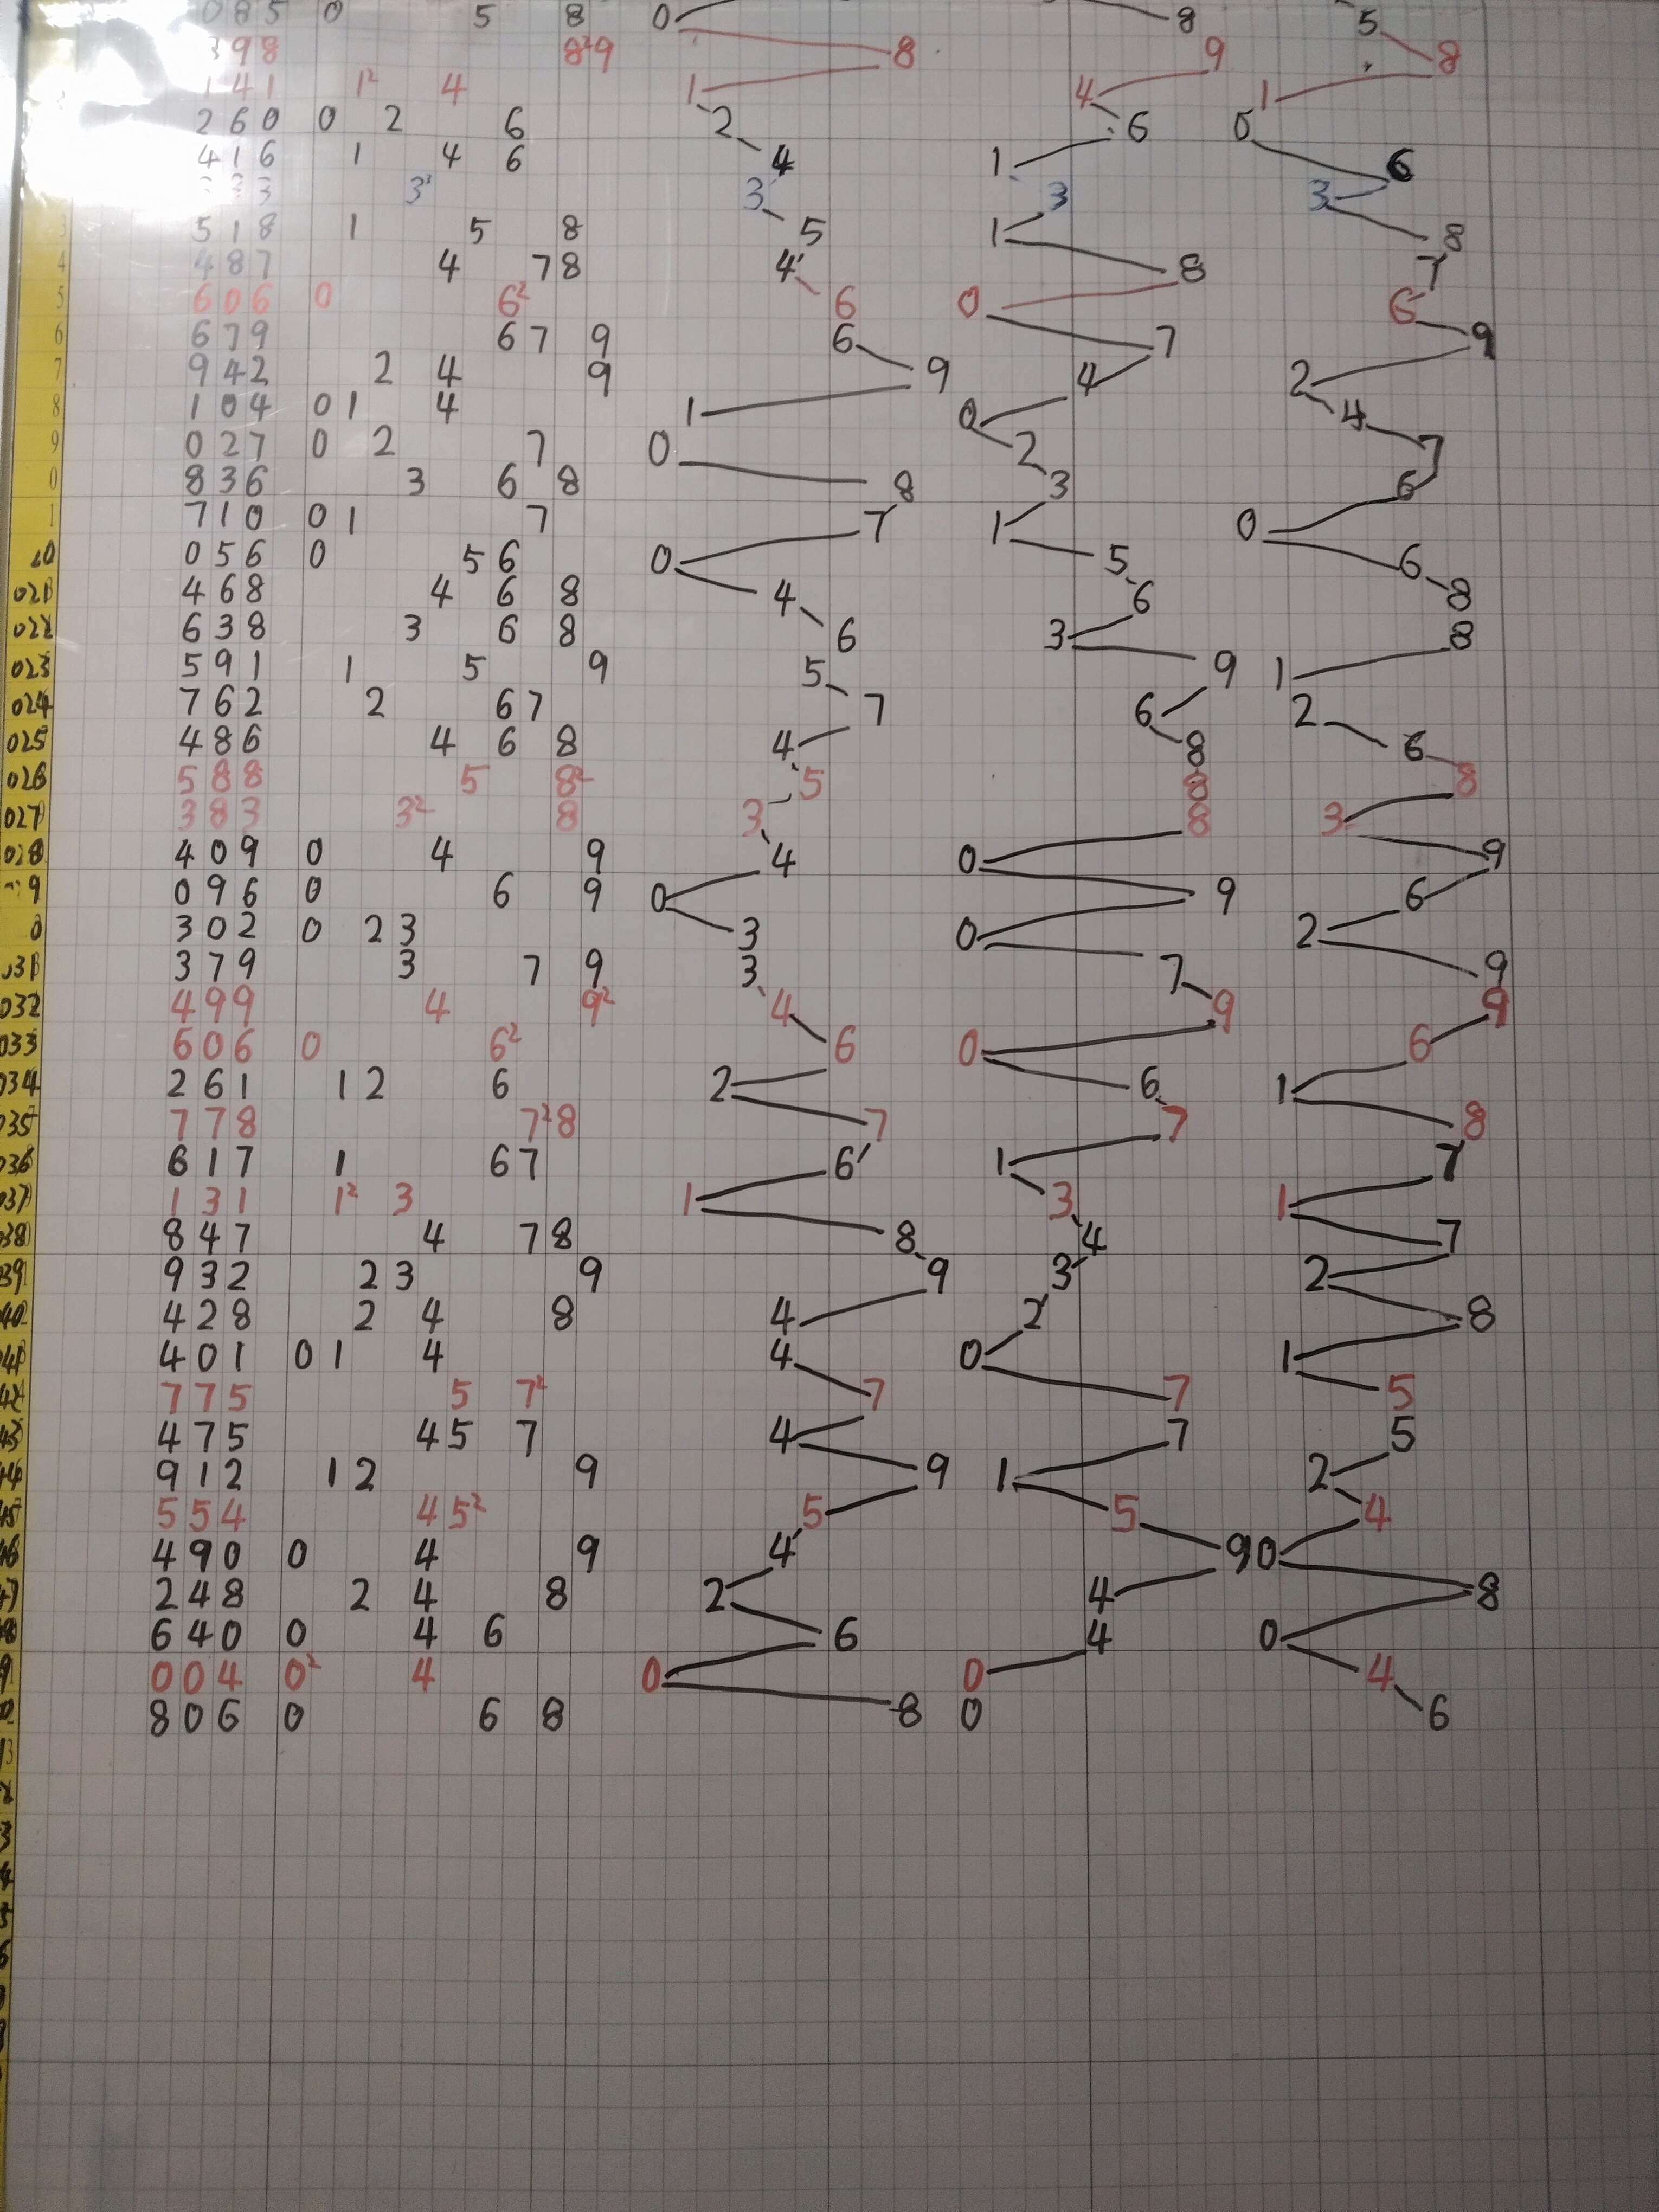 085 0 5 8 0 8 5
398 8²9 8 9 8
141 1² 4 1 4 1
260 0 2 6 2 6 0
416 1 4 6 4 1 6
3 3 3 3
3 518 1 5 8 5 1 8
4 487 4 7 8 4 8 7
5 606 0 6² 6 0 6
6 679 6 7 9 6 7 9
7 942 2 4 9 9 4 2
8 104 0 1 4 1 0 4
9 027 0 2 7 0 2 7
0 836 3 6 8 8 3 6
1 710 0 1 7 7 1 0
20 056 0 5 6 0 5 6
021 468 4 6 8 4 6 8
022 638 3 6 8 6 3 8
023 591 1 5 9 5 9 1
024 762 2 6 7 7 6 2
025 486 4 6 8 4 8 6
026 588 5 8² 5 8 8
027 383 3² 8 3 8 3
028 409 0 4 9 4 0 9
9 096 0 6 9 0 9 6
0 302 0 2 3 3 0 2
031 379 3 7 9 3 7 9
032 499 4 9² 4 9 9
033 606 0 6² 6 0 6
034 261 1 2 6 2 6 1
035 778 7²8 7 7 8
036 617 1 6 7 6 1 7
037 131 1² 3 1 3 1
038 847 4 7 8 8 4 7
039 932 2 3 9 9 3 2
040 428 2 4 8 4 2 8
041 401 0 1 4 4 0 1
42 775 5 7² 7 7 5
43 475 4 5 7 4 7 5
44 912 1 2 9 9 1 2
45 554 4 5² 5 5 4
46 490 0 4 9 4 9 0
47 248 2 4 8 2 4 8
48 640 0 4 6 6 4 0
9 004 0² 4 0 0 4
806 0 6 8 8 0 6
3
4